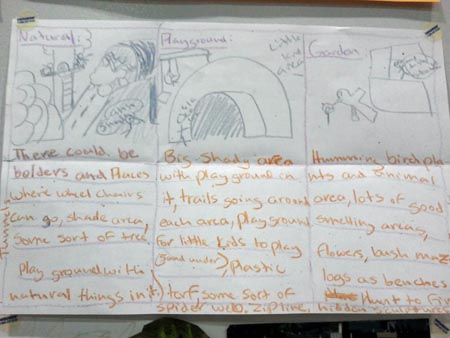 Natural:
There could be
bolders and Places
where wheel chairs
can go, shade area,
some sort of tree
Play ground with
natural things in it
Tunnels
Playground:
Little
kid
area
Big shady area
with play ground in
it, trails going around
each area, playground
for little kids to play
(sand under), Plastic
torf some sort of
spider web, zipline,
Garden
Humming bird pla
nts and animal
area, lots of good
smelling areas,
flowers, bush maz
logs as benches
Hunt to fin
hidden